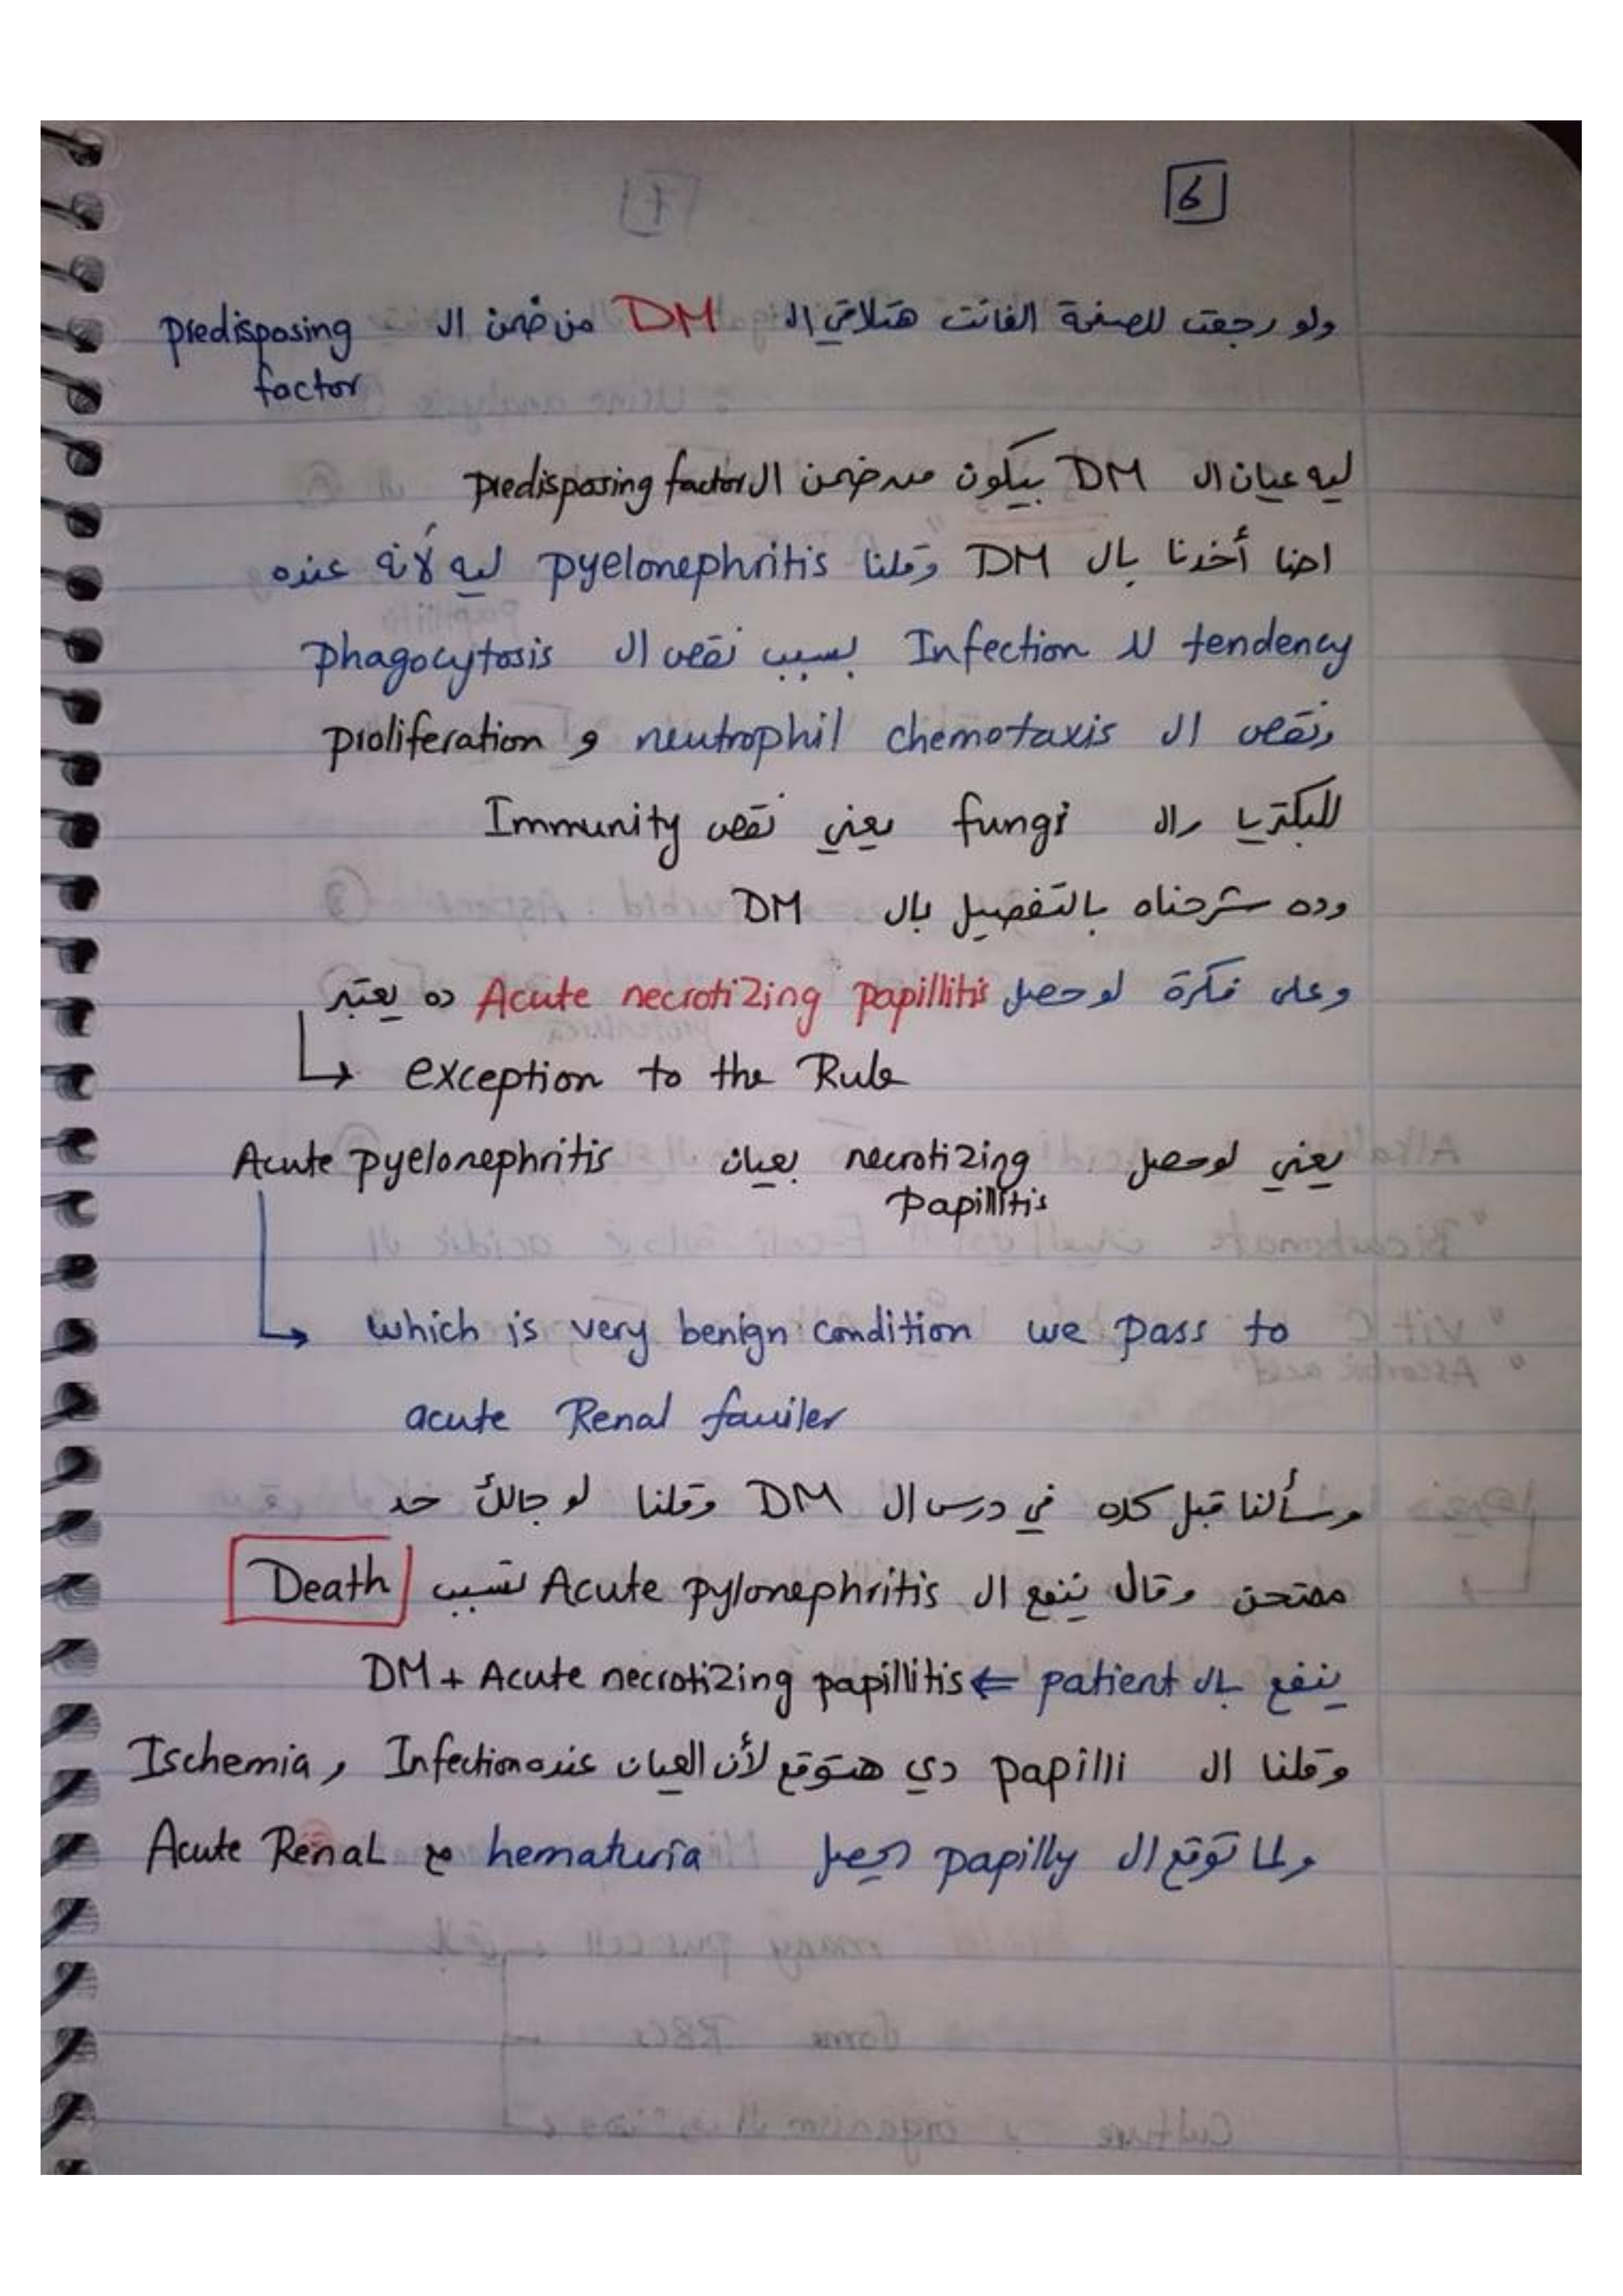 6
ولو رجعت للصفحة الفاتت هتلاقي ال DM من ضمن ال predisposing
factor
ليه عيان ال DM بيكون من ضمن ال predisposing factor
احنا أخدنا بال DM وقلنا pyelonephritis ليه لأنه عنده
tendency لل Infection بسبب نقص ال phagocytosis
ونقص ال neutrophil chemotaxis و proliferation
للبكتريا وال fungi يعني نقص Immunity
وده شرحناه بالتفصيل بال DM
وعلى فكرة لو حصل Acute necrotizing papillitis ده يعتبر
↳ exception to the Rule
يعني لو حصل necrotizing papillitis بعيان Acute pyelonephritis
↳ which is very benign condition we pass to
acute Renal fauiler
وسألنا قبل كده في درس ال DM وقلنا لو جالك حد
ممتحن وقال ينفع ال Acute pylonephritis تسبب Death
ينفع بال patient ⇐ DM + Acute necrotizing papillitis
وقلنا ال papilli دي هتوقع لأن العيان عنده Infection و Ischemia
ولما توقع ال papilly يحصل hematuria مع Acute Renal